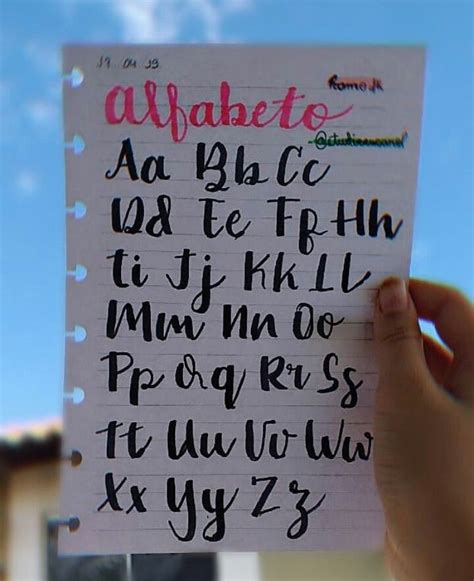 04 19
alfabeto
Aa Bb Cc
Dd Ee Ff Hh
Ii Jj Kk Ll
Mm Nn Oo
Pp Qq Rr Ss
Tt Uu Vv Ww
Xx Yy Zz